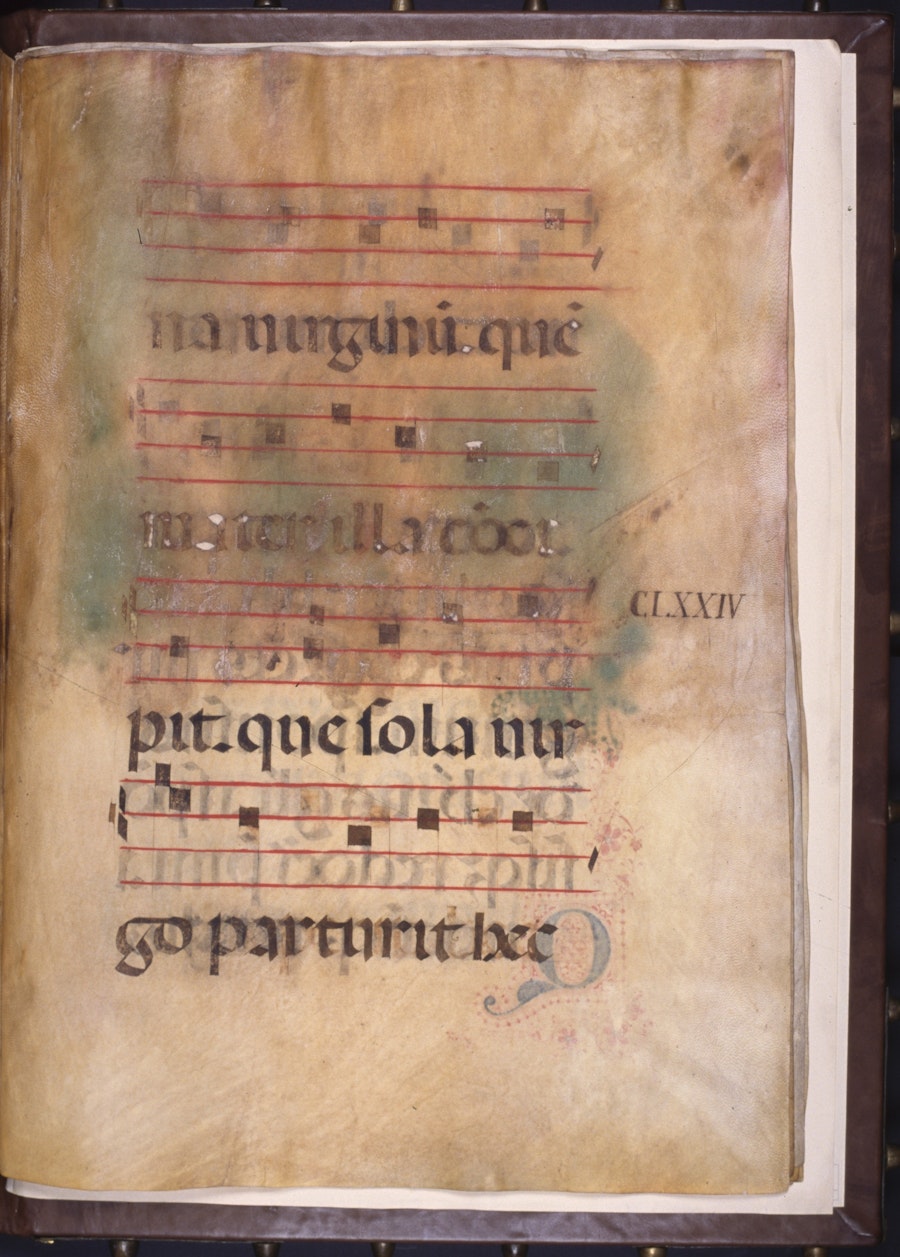 na uirginū. quē
mater illa cōce
CLXXIV
pit. que sola uir
go parturit hec